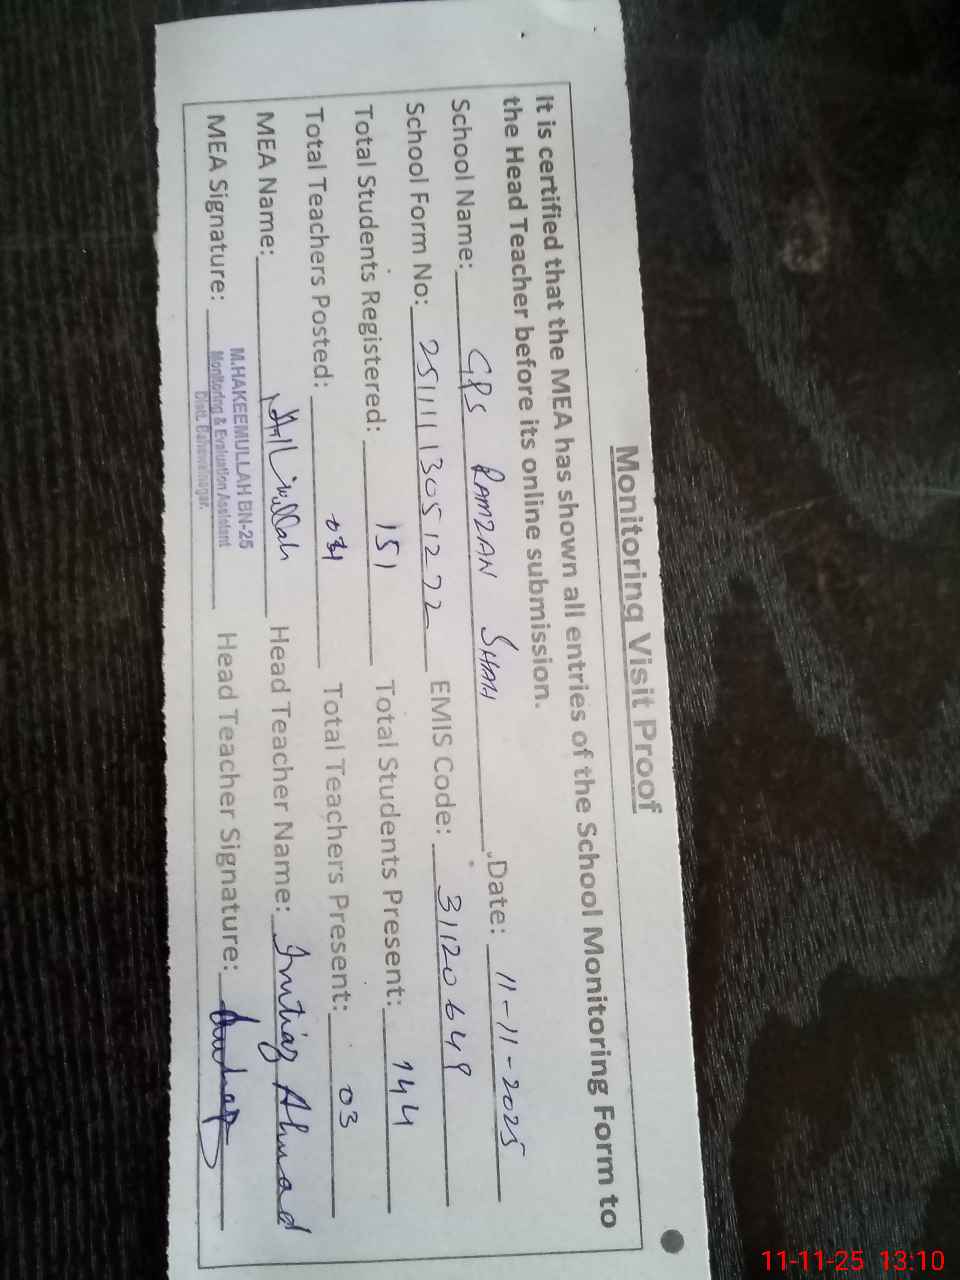 Monitoring Visit Proof
It is certified that the MEA has shown all entries of the School Monitoring Form to
the Head Teacher before its online submission.
School Name: GPS RAMZAN SHAH Date: 11-11-2025
School Form No: 2511113051272 EMIS Code: 31120649
Total Students Registered: 151 Total Students Present: 144
Total Teachers Posted: Total Teachers Present: 03
MEA Name: Head Teacher Name: Imtiaz Ahmad
M.HAKEEMULLAH BN-25
MEA Signature: Head Teacher Signature:
Monitoring & Evaluation Assistant
Distt. Bahawalnagar.
11-11-25 13:10